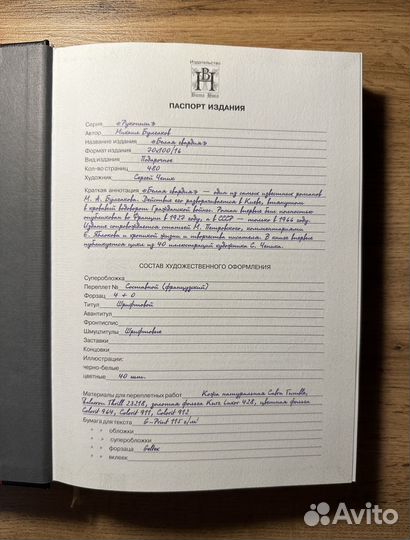 Издательство
ВН
Вита Нова
ПАСПОРТ ИЗДАНИЯ
Серия «Рукописи»
Автор Михаил Булгаков
Название издания «Белая гвардия»
Формат издания 70х100/16
Вид издания Подарочное
Кол-во страниц 480
Художник Сергей Чепик
Краткая аннотация «Белая гвардия» — один из самых известных романов
М. А. Булгакова. Действие его разворачивается в Киеве,
в кровавый водоворот Гражданской войны. Роман впервые был полностью
опубликован во Франции в 1927 году, а в СССР — только в 1966 году.
Издание сопровождается статьей М. Петровского, комментариями
Е. Яблокова и хроникой жизни и творчества писателя. В книге впервые
публикуется цикл из 40 иллюстраций художника С. Чепика.
СОСТАВ ХУДОЖЕСТВЕННОГО ОФОРМЛЕНИЯ
Суперобложка
Переплет № Составной (французский)
Форзац 4 + 0
Титул Шрифтовой
Авантитул
Фронтиспис
Шмуцтитулы Шрифтовые
Заставки
Концовки
Иллюстрации:
черно-белые
цветные 40 илл.
Материалы для переплетных работ Кожа натуральная Cabra
23218, золотая фольга Kurz Luxor 428, цветная фольга
Colorit 964, Colorit 911, Colorit 912
Бумага для текста G-Print 115 г/м²
» » обложки
» » суперобложки
» » форзаца
» » вклеек
Avito